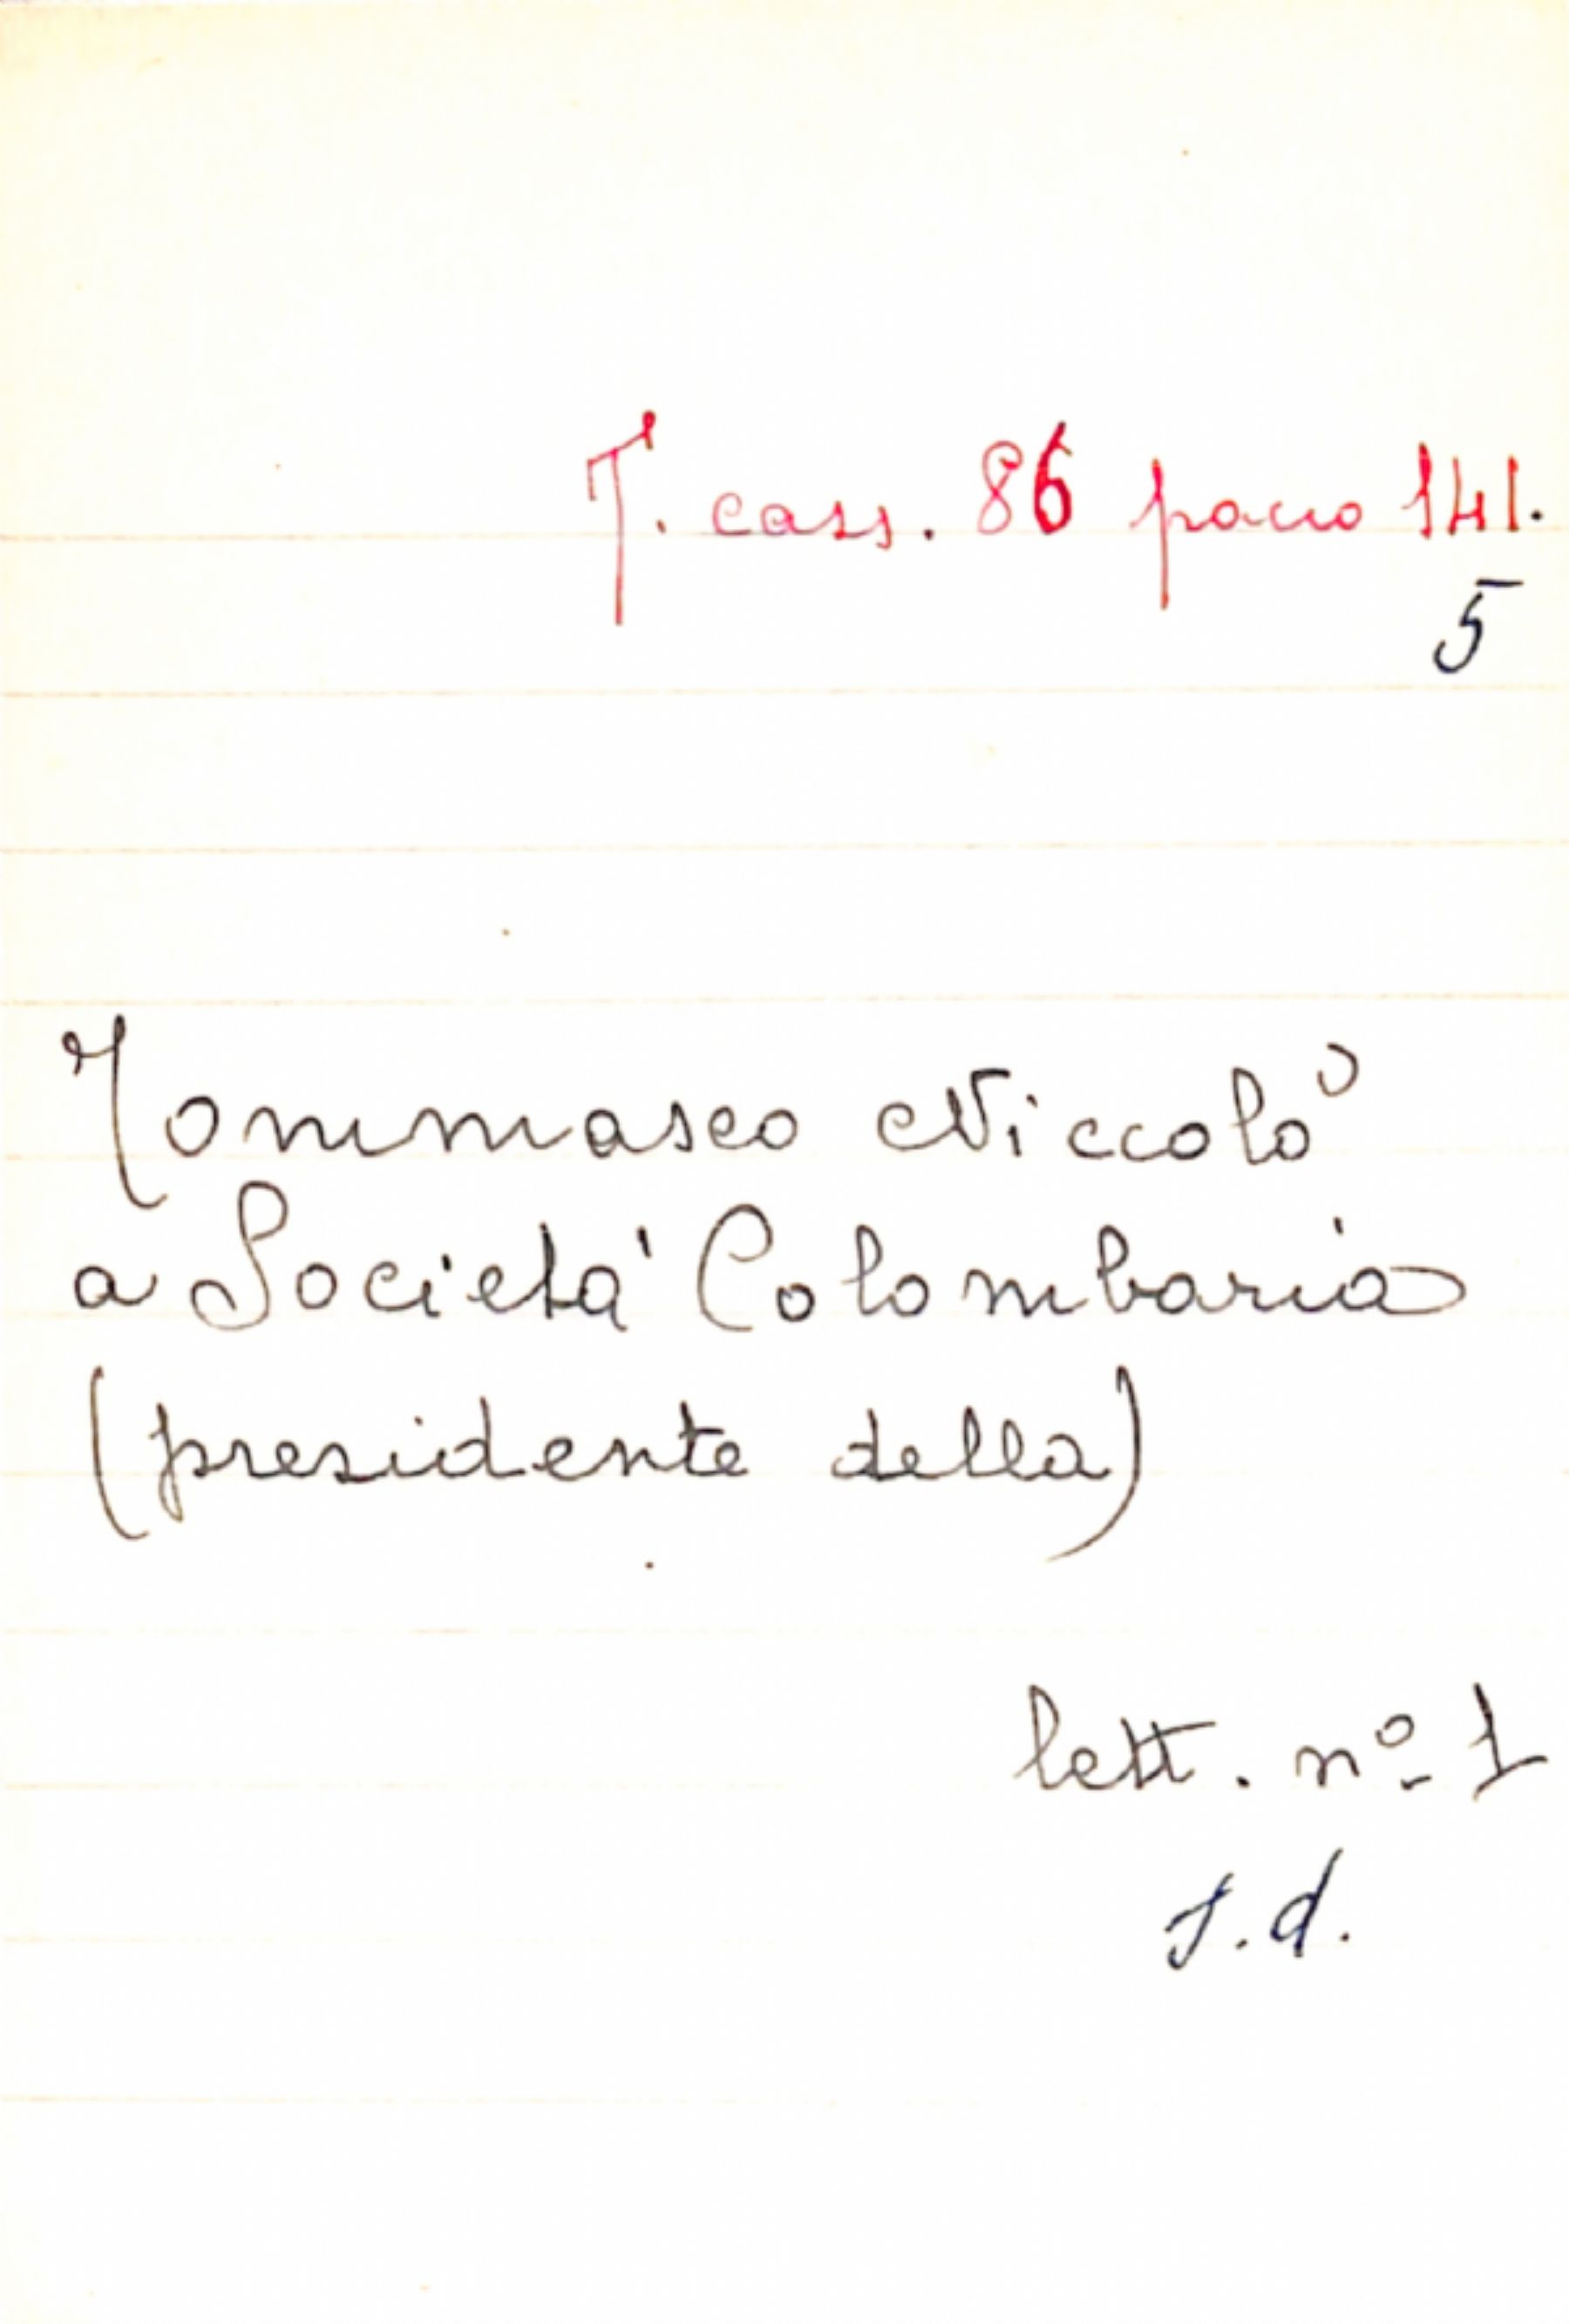 T. cass. 86 pacco 141.
5
Tommaseo Niccolò
a Società Colombaria
(presidente della)
lett. nº 1
s.d.